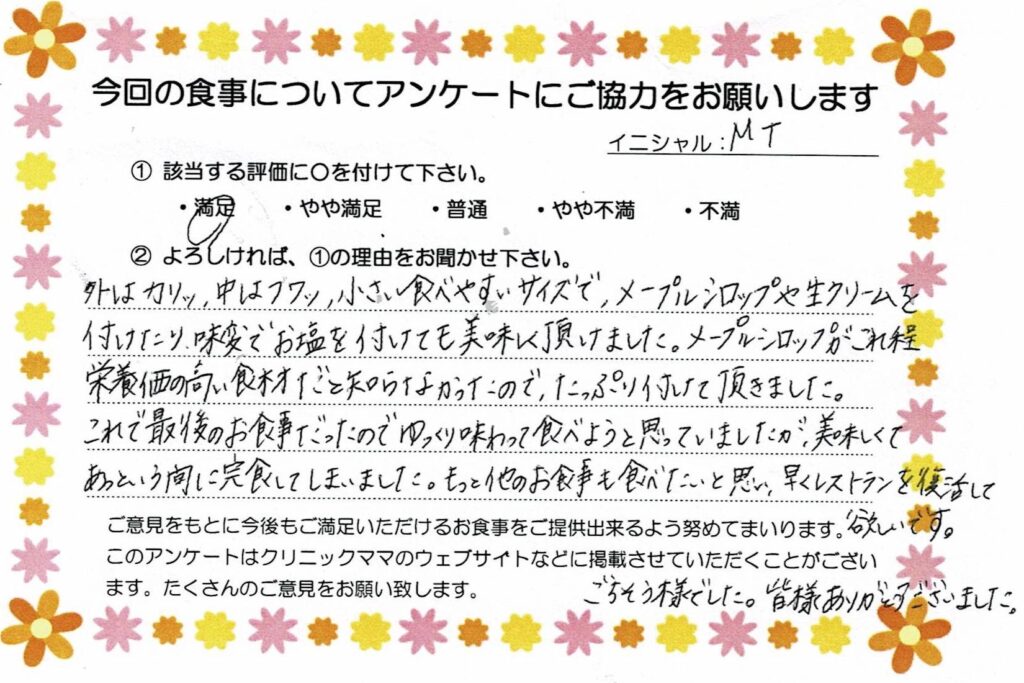 今回の食事についてアンケートにご協力をお願いします
イニシャル：MT
① 該当する評価に〇を付けて下さい。
・満足　・やや満足　・普通　・やや不満　・不満
② よろしければ、①の理由をお聞かせ下さい。
外はカリッ,中はフワッ,小さい食べやすいサイズで,メープルシロップや生クリームを
付けたり,味変でお塩を付けても美味しく頂けました。メープルシロップがこれ程
栄養価の高い食材だと知らなかったので,たっぷり付けて頂きました。
これで最後のお食事だったのでゆっくり味わって食べようと思っていましたが,美味しくて
あっという間に完食してしまいました。もっと他のお食事も食べたいと思い,早くレストランを復活して
欲しいです。
ご意見をもとに今後もご満足いただけるお食事をご提供出来るよう努めてまいります。
このアンケートはクリニックママのウェブサイトなどに掲載させていただくことがござい
ます。たくさんのご意見をお願い致します。
ごちそう様でした。皆様ありがとうございました。